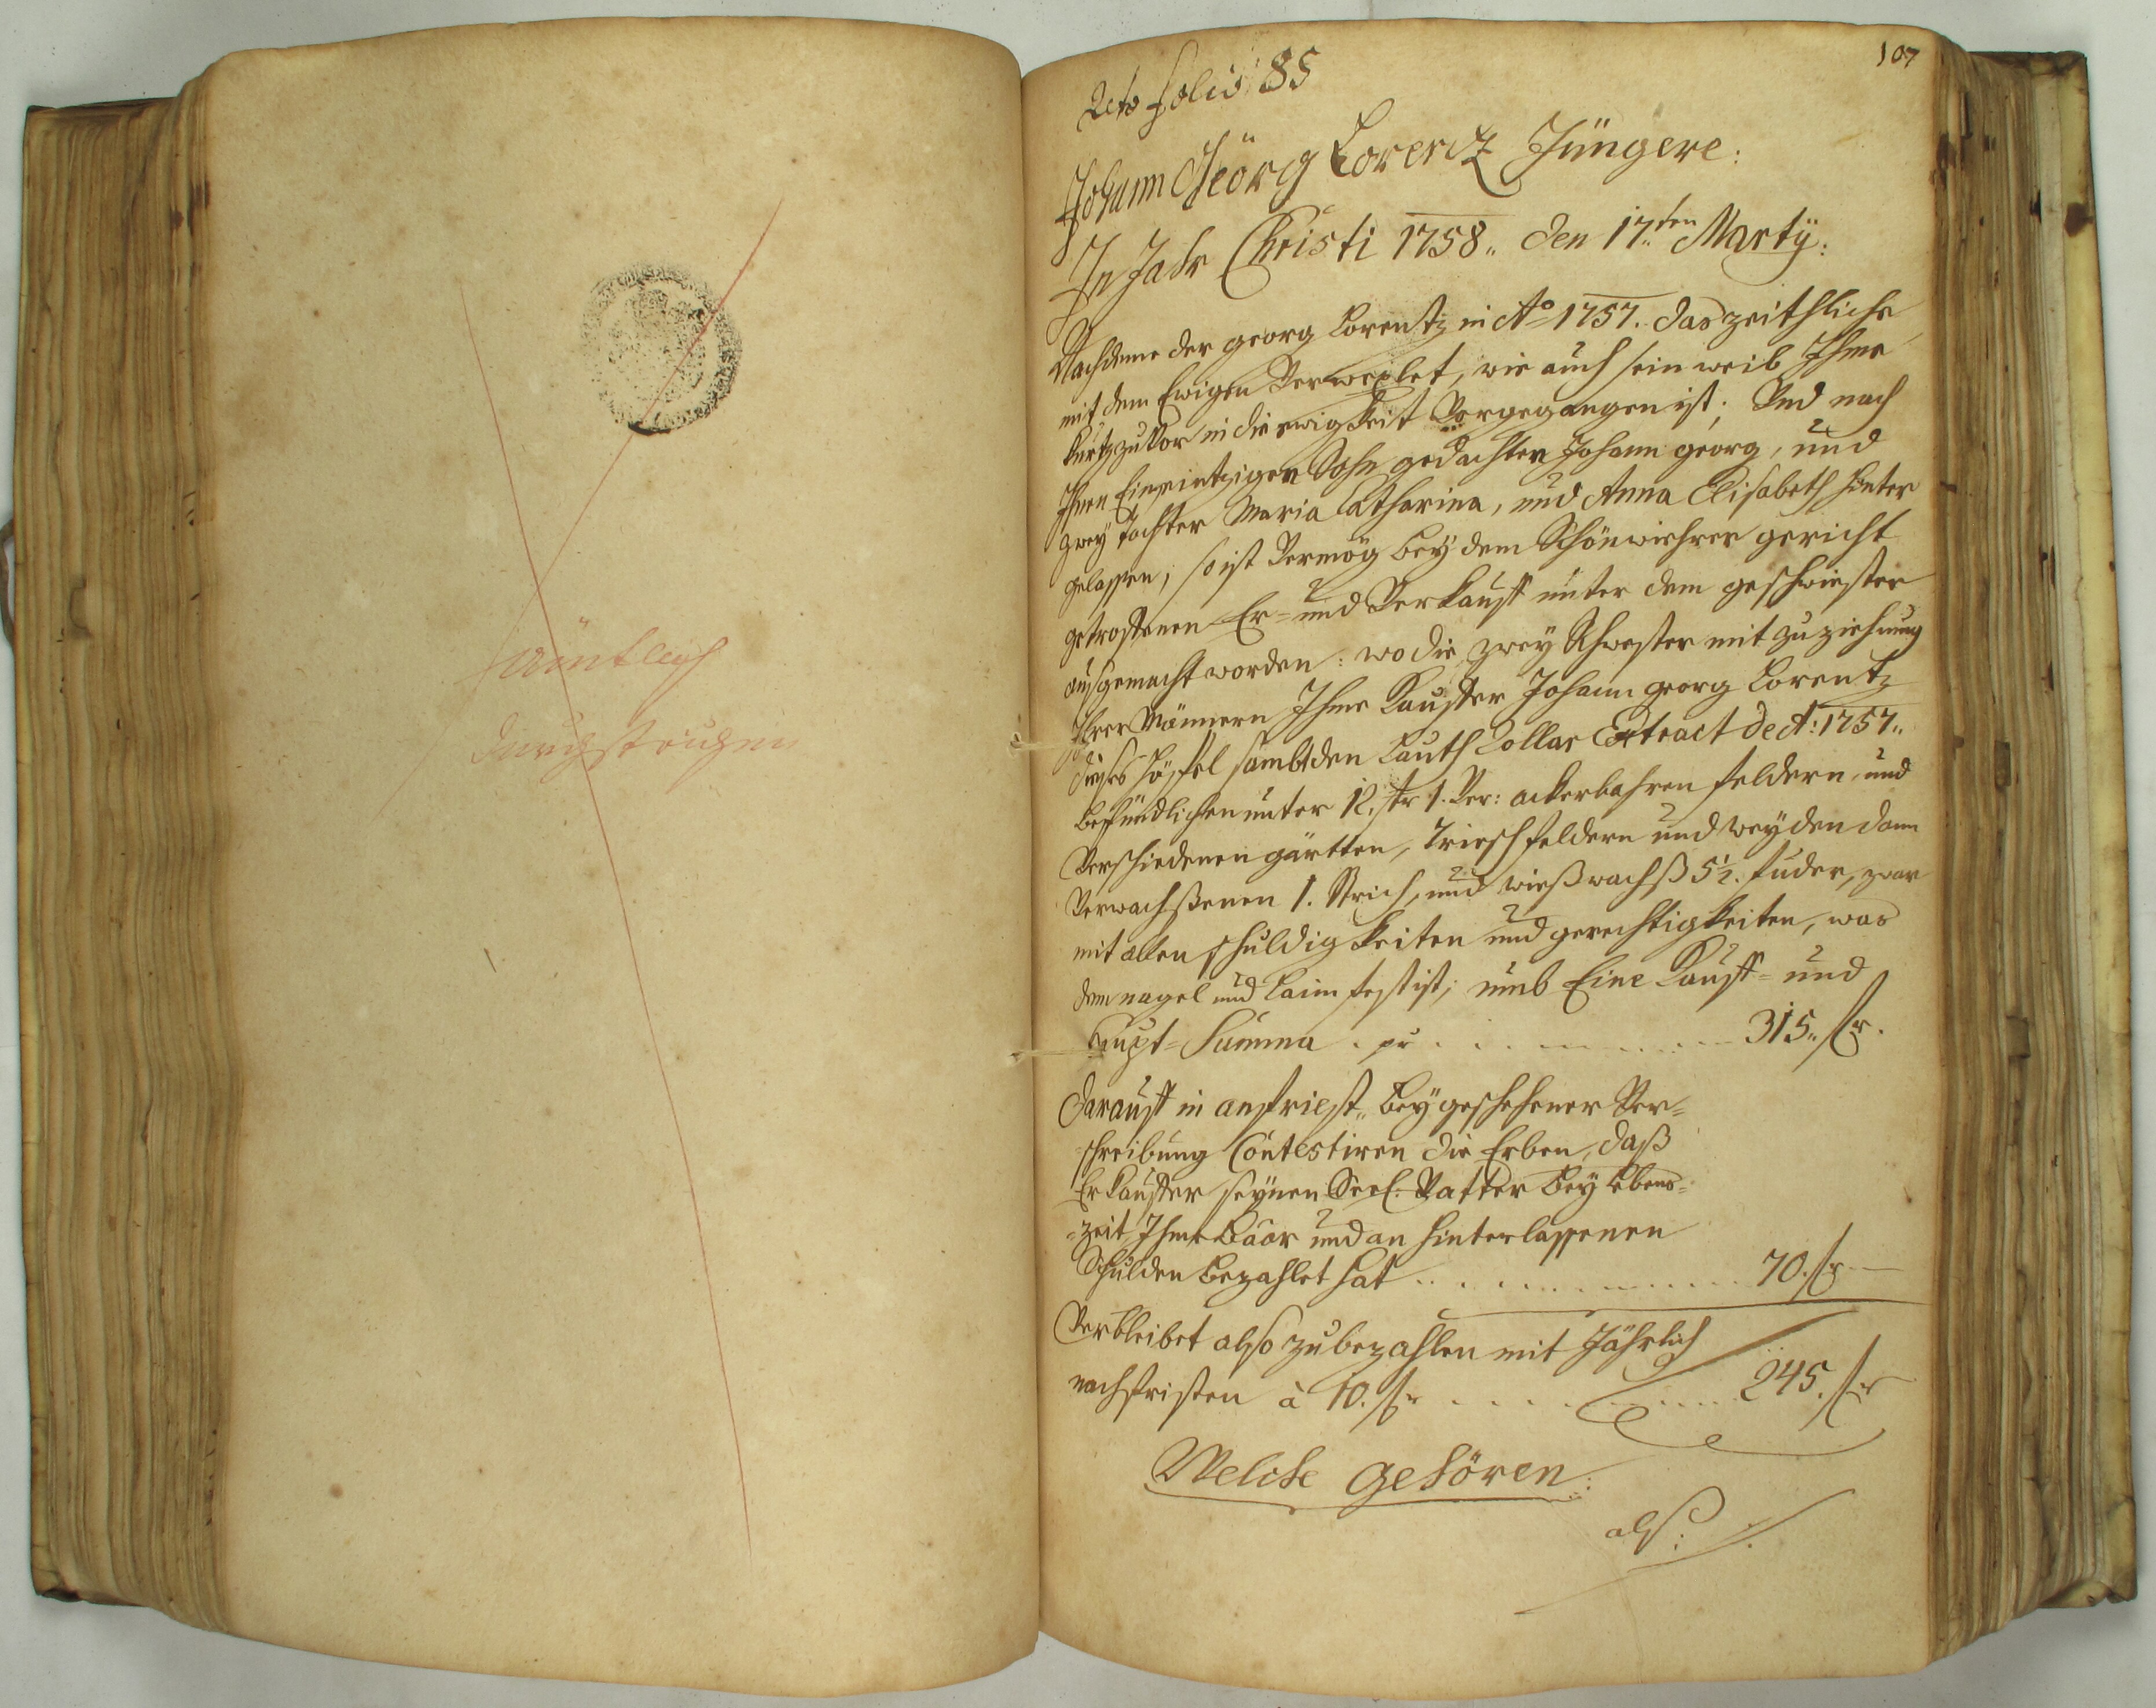 ämtlich
durchstrichen
107
folio 85
Johann Georg Lorentz Jüngere:
In Jahr Christi 1758.. den 17.ten Martÿ:
Nachdeme der georg Lorentz in Aõ 1757. das zeithliche
mit dem Ewigen Verwexlet, wie auch sein weib Ihme
kurtz zu Vor in die ewigkeit Vorgegangen ist; Und nach
Ihnen Einen intzigen Sohn gedachten Johann georg, und
zweÿ Töchter Maria Catharina, und Anna Elisabeth hinter
gelassen; so ist Vermög beÿ dem Schönwehrer gericht
getroffenen Er= und Verkauff unter dem geschwiester
ausgemacht worden: wo die zweÿ Schwester mit zu ziehung
Ihrer Männern Ihme Kauffer Johann georg Lorentz
dieses höffel sambt den Lauth Collar Extract de A: 1757..
befündlichen unter 12. str 1. Ver: ackerbahren feldern, und
Verschiedenen gärtten, Trieschfeldern und weÿden dann
Verwachßenen 1. Strich, und wießwachß 5½. fuder, zwar
mit allen schuldigkeiten und gerechtigkeiten, was
dem nagel und Laim fest ist; umb Eine Kauff= und
Haupt=Summa . pr . . . . . . . 315.. sr.
Darauff in anfriest.. beÿ geschehener Ver=
schreibung Contestiren die Erben, daß
Er Kauffer seÿnen Seel. Vatter beÿ lebens=
=zeit Ihme Baar und an hinterlassenen
Schulden bezahlet hat . . . . . . . 70. sr
Verbleibet also zu bezahlen mit Jährlich
nachfristen à 10. sr . . . . . . . 245. sr
Welche gehören:
alß: